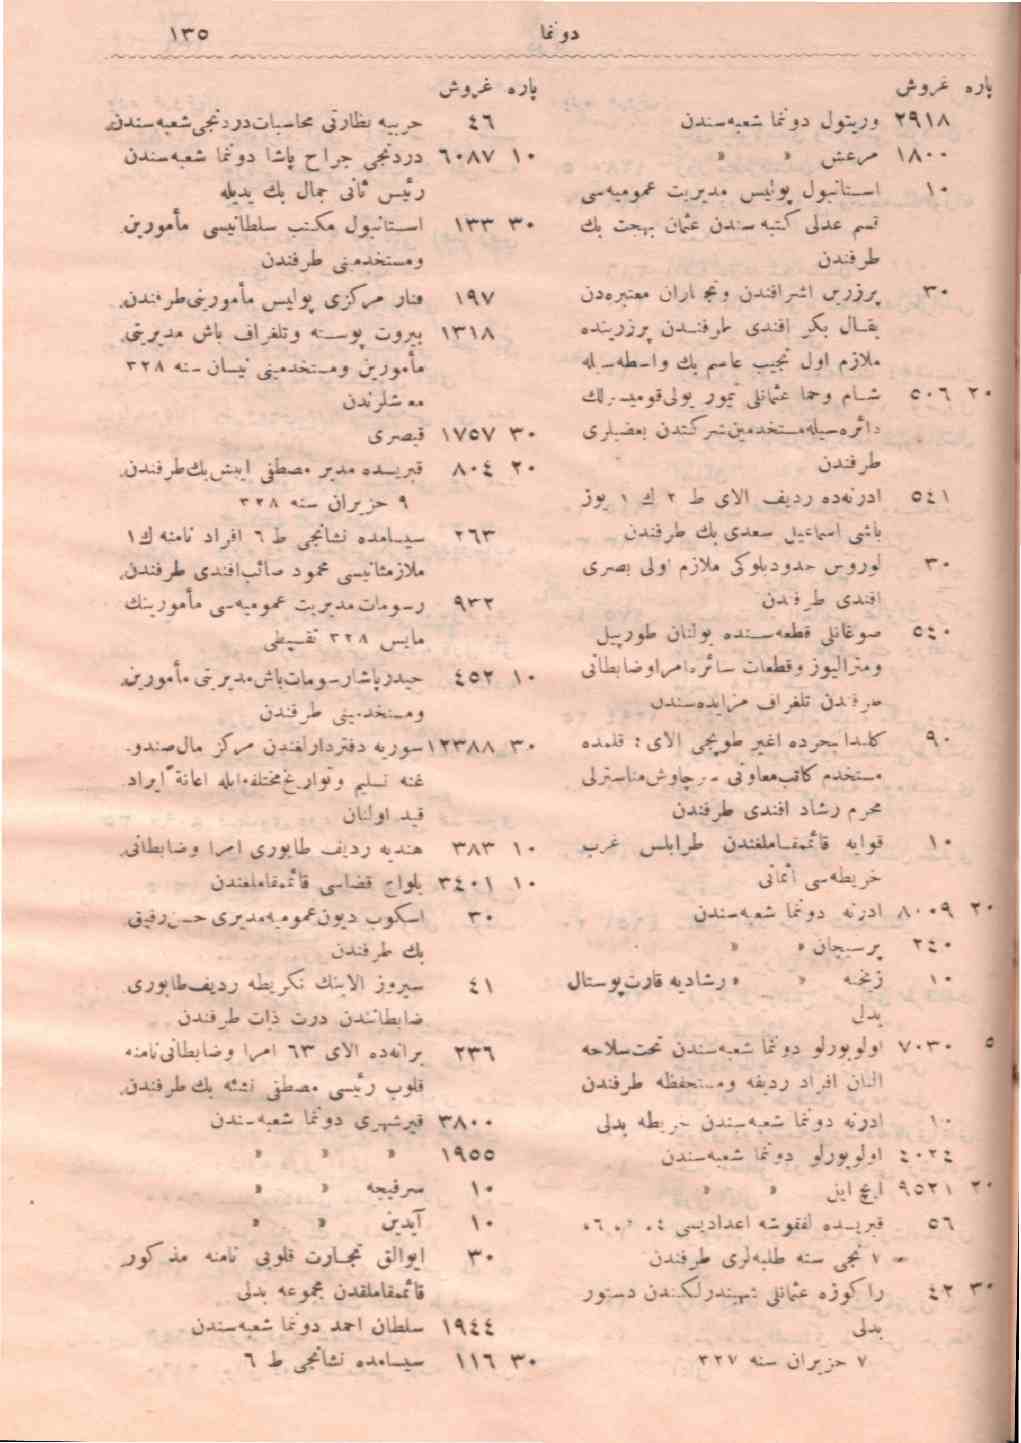 دونما ١٣٥
پاره غروش
٢٩١٨ وریتول دونما شعبه‌سندن
١٨٠٠ مرعش » »
١٠ استانبول پولیس مدیریت عمومیه‌سی
قسم عدلی کتبه‌سندن عثمان بهجت بك
طرفندن
٣٠ پرزرین اشرافندن وتجاران معتبره‌دن
بقال بکر افندی طرفندن پرزرینده
ملازم اول نجیب عاصم بك واسطه‌سیله
٢٠ ٥٠٦ شام وحما عثمانلی تیمور یولی قومپ
دائره‌سیله مستخدمین شرکتدن بعضیلری
طرفندن
٥٤١ ادرنه‌ده ردیف الای ط ٢ ك ١ یوز
باشی اسماعیل سعدی بك طرفندن
٣٠ لوروس حدودبلوکی ملازم اولی بصری
افندی طرفندن
٥٤٠ صوغانلی قطعه‌سنده بولنان طورپیل
ومترالیوز وقطعات سائره‌امراوضابطانی
طرفندن تلغراف مزایده‌سندن
٩٠ طوپچی الای ٤ قلمنده
مستخدم کاتب‌معاونی سرچاوش‌مناسترلی
محرم رشاد افندی طرفندن
١٠ قوایه قائممقاملغندن طرابلس غرب
خریطه‌سی اثمانی
٢٠ ٨٠٠٩ ادرنه دونما شعبه‌سندن
٢٤٠ پرسیچان » »
١٠ زیخنه » » رشادیه قارت‌پوستال
بدلی
٥ ٧٠٣٠ اولوبورلو دونما شعبه‌سندن تحت‌سلاحه
النان افراد ردیفه ومستحفظه طرفندن
١٠ ادرنه دونما شعبه‌سندن خریطه بدلی
٤٠٢٤ اولوبورلو دونما شعبه‌سندن
٢٠ ٩٥٢١ ایچ ایل » »
٥٦ قبریسده لفقوشه اعدادیسی ٤٠ ٥٠ ٦٠
٧ نجی سنه طلبه‌لری طرفندن
٣٠ ٤٢ راکوزه عثمانلی شهبندرلکندن دستور
بدلی
٧ حزیران سنه ٣٢٧
پاره غروش
٤٦ حربیه نظارتی محاسبات‌دردنجی‌شعبه‌سندن
١٠ ٦٠٨٧ دردنجی جراح پاشا دونما شعبه‌سندن
رئیس ثانی جمال بك یدیله
٣٠ ١٣٣ استانبول مکتب سلطانیسی مأمورین
ومستخدمینی طرفندن
١٩٧ فنار مرکزی پولیس مأمورینی‌طرفندن
١٣١٨ بیروت پوسته وتلغراف باش مدیریتی
مأمورین ومستخدمینی نیسان سنه ٣٢٨
معاشلرندن
٣٠ ١٧٥٧ قیصری
٢٠ ٨٠٤ قبریسده مدیر مصطفی ایبش‌بك‌طرفندن
٩ حزیران سنه ٣٢٨
٢٦٣ سیسامده نشانجی ط ٦ افراد نامنه ك١
ملازم‌ثانیسی محمود صائب‌افندی طرفندن
٩٣٢ رسومات‌مدیریت عمومیه‌سی مأمورینك
مایس ٣٢٨ تقسیطی
١٠ ٤٥٢ حیدرپاشارسومات‌باش‌مدیریتی مأمورین
ومستخدمینی طرفندن
٣٠ ١٢٣٨٨ سوریه دفتردارلغندن مرکز مال‌صندو
غنه تسلیم وتواریخ‌مختلفه‌ایله اعانة ایراد
قید اولنان
١٠ ٣٨٣ هندیه ردیف طابوری امرا وضابطانی
١٠ ٣٤٠١ یلواج قضاسی قائممقاملغندن
٣٠ اسکوب دیون‌عمومیه‌مدیری حسن‌رفیق
بك طرفندن
٤١ سیروز الاینك نکریطه ردیف‌طابوری
ضابطانندن درت ذات طرفندن
٢٣٦ برانه‌ده الای ٦٣ امرا وضابطانی‌نامنه
قلوب رئیسی مصطفی نشئه بك طرفندن
٣٨٠٠ قیرشهری دونما شعبه‌سندن
١٩٥٥ » » »
١٠ سرفیجه » »
١٠ آیدین » »
٣٠ ایوالق تجارت قلوبی نامنه مذکور
قائممقاملقدن مجموعه بدلی
١٩٤٤ سلطان احمد دونما شعبه‌سندن
٣٠ ١١٦ سیسامده نشانجی ط ٦